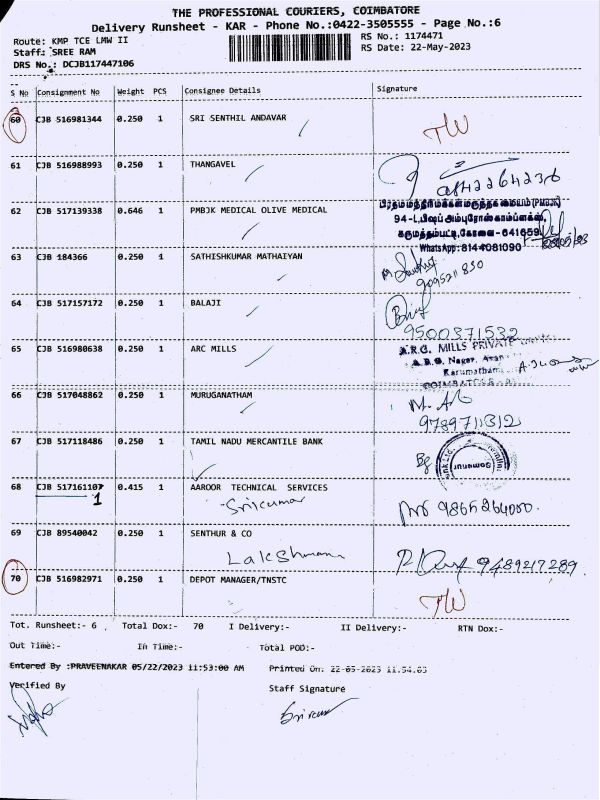 THE PROFESSIONAL COURIERS, COIMBATORE
Delivery Runsheet - KAR - Phone No.:0422-3505555 - Page No.:6
Route: KMP TCE LMW II
RS No.: 1174471
Staff: SREE RAM
RS Date: 22-May-2023
DRS No.: DCJB117447106
S No Consignment No Weight PCS Consignee Details Signature
60 CJB 516981344 0.250 1 SRI SENTHIL ANDAVAR TW
61 CJB 516988993 0.250 1 THANGAVEL
62 CJB 517139338 0.646 1 PMBJK MEDICAL OLIVE MEDICAL
94-L, பிஷப் அம்புரோஸ் காம்ப்ளக்ஸ்,
கருமத்தம்பட்டி, கோவை - 641659.
WhatsApp: 8144081090
63 CJB 184366 0.250 1 SATHISHKUMAR MATHAIYAN
9095211830
64 CJB 517157172 0.250 1 BALAJI
9500371532
65 CJB 516980638 0.250 1 ARC MILLS
A.R.C. MILLS PRIVATE
66 CJB 517048862 0.250 1 MURUGANATHAM
9789711312
67 CJB 517118486 0.250 1 TAMIL NADU MERCANTILE BANK
Somanur
68 CJB 517161107 0.415 1 AAROOR TECHNICAL SERVICES
1 Srikumar 9865264000.
69 CJB 89540042 0.250 1 SENTHUR & CO
Lakshmanan 9489217289
70 CJB 516982971 0.250 1 DEPOT MANAGER/TNSTC
TW
Tot. Runsheet:- 6 Total Dox:- 70 I Delivery:- II Delivery:- RTN Dox:-
Out Time:- In Time:- Total POD:-
Entered By :PRAVEENAKAR 05/22/2023 11:53:00 AM Printed On: 22-05-2023 11.54.03
Verified By Staff Signature
Srikumar